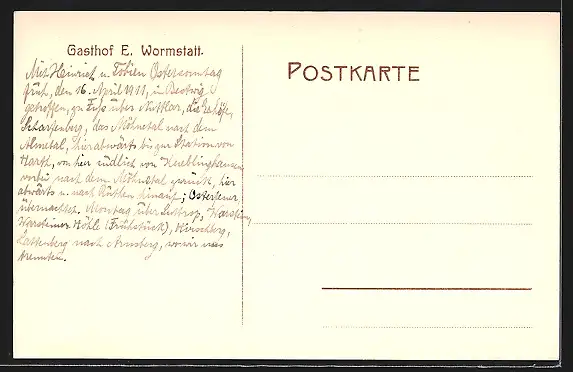 Gasthof E. Wormstall.
POSTKARTE
Mit Heinrich u. Tobien Ostersonntag
früh, den 16. April 1911, in Bestwig
getroffen, zu Fuß über Nuttlar, die Gehöfte,
Scharfenberg, das Möhnetal nach dem
Almetal, hier abwärts bis zur Station von
Harth, von hier südlich von
vorbei nach dem Möhnetal zurück, hier
abwärts u. nach Rüthen hinauf; Osterfeuer
übernachtet. Montag über Suttrop, Warstein,
Warsteiner Höhle (Frühstück), Hirschberg,
Lattenberg nach Arnsberg, wo wir uns
trennten.